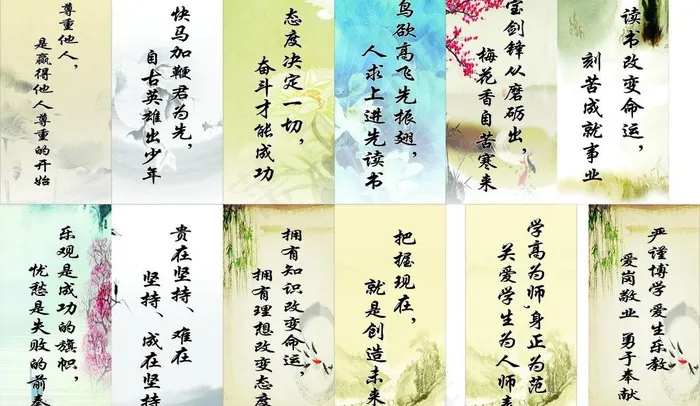 尊重他人，
是赢得他人尊重的开始
快马加鞭君为先，
自古英雄出少年
态度决定一切，
奋斗才能成功
鸟欲高飞先振翅，
人求上进先读书
宝剑锋从磨砺出，
梅花香自苦寒来
读书改变命运，
刻苦成就事业
乐观是成功的旗帜，
忧愁是失败的前奏
贵在坚持、难在
坚持、成在坚持
拥有知识改变命运，
拥有理想改变态度
把握现在，
就是创造未来
学高为师,身正为范
关爱学生为人师表
严谨博学 爱生乐教
爱岗敬业 勇于奉献